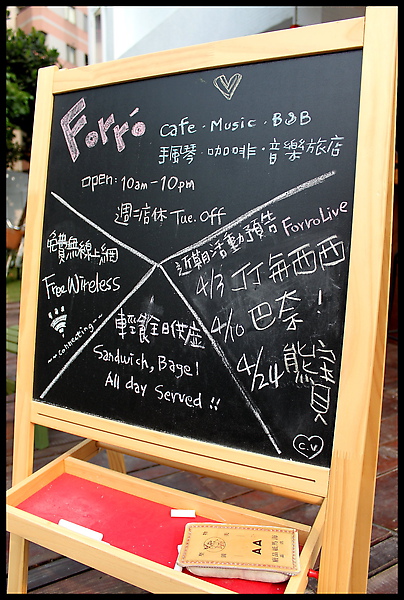 Forró
Cafe · Music · B&B
手風琴 · 咖啡 · 音樂旅店
open: 10am - 10pm
週二店休 Tue. off
免費無線上網
Free Wireless
~~connecting~~
近期活動預告 Forro Live
4/3 JJ 毎西西
4/10 巴奈!
4/24 熊寶貝
輕食全日供應
Sandwich, Bagel
All day Served !!
C.V
AA